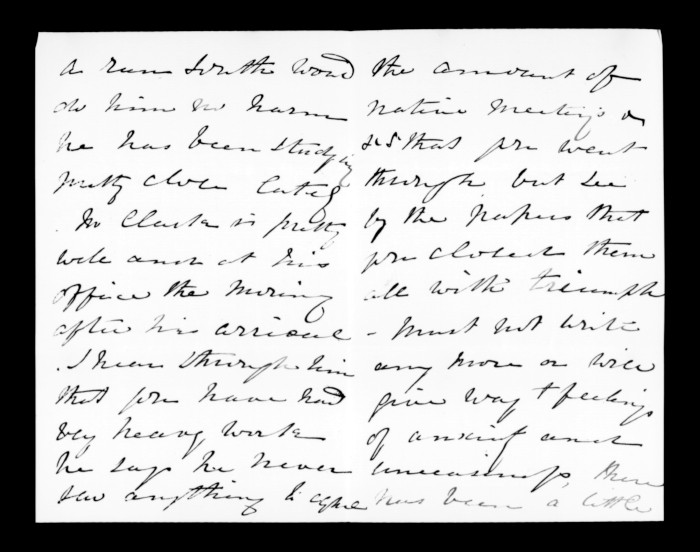 a run South would
do him no harm
he has been studying
pretty close lately
. Mr Clark is pretty
well and at his
office the morning
after his arrival
. I hear through him
that you have had
very heavy work
he says he never
saw anything to equal
the amount of
native meetings &
that you went
through, but see
by the papers that
you closed them
all with triumph
- Must not write
any more or will
give way to feelings
of and
uneasiness, there
has been a little